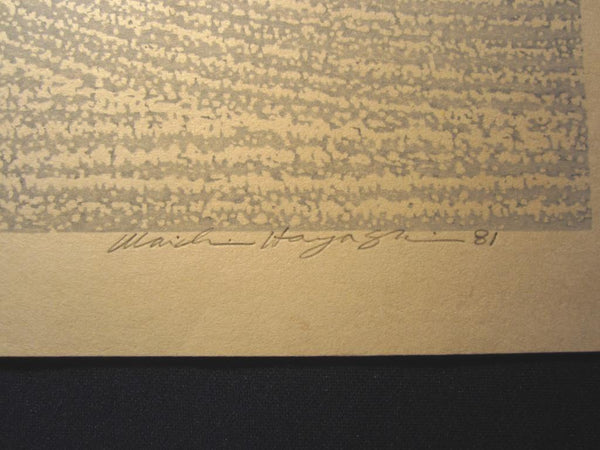 Waichi Hayashi 81